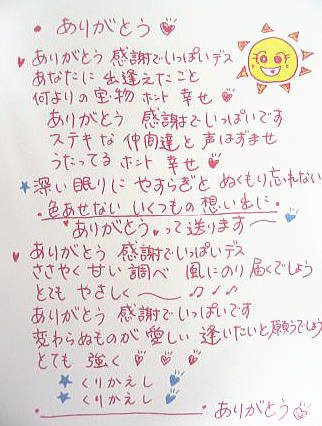 • ありがとう ♥
♥ ありがとう 感謝でいっぱいデス
あなたに 出逢えたこと
何よりの宝物 ホント 幸せ ♥
ありがとう 感謝でいっぱいです
ステキな 仲間達と 声はずませ
うたってる ホント 幸せ ♥
★深い眠りに やすらぎと ぬくもり忘れない
・色あせない いくつもの 想い出に・
ありがとう♥って 送ります〜 ♥
♥ ありがとう 感謝でいっぱいデス
ささやく 甘い 調べ 風にのり 届くでしょう
とても やさしく〜 ♪♪♪
ありがとう 感謝でいっぱいです
変わらぬものが 愛しい 逢いたいと願うでしょう
とても 強く ♥ ♥ ♥
★ くりかえし ♥
★ くりかえし ♥
ありがとう ♥